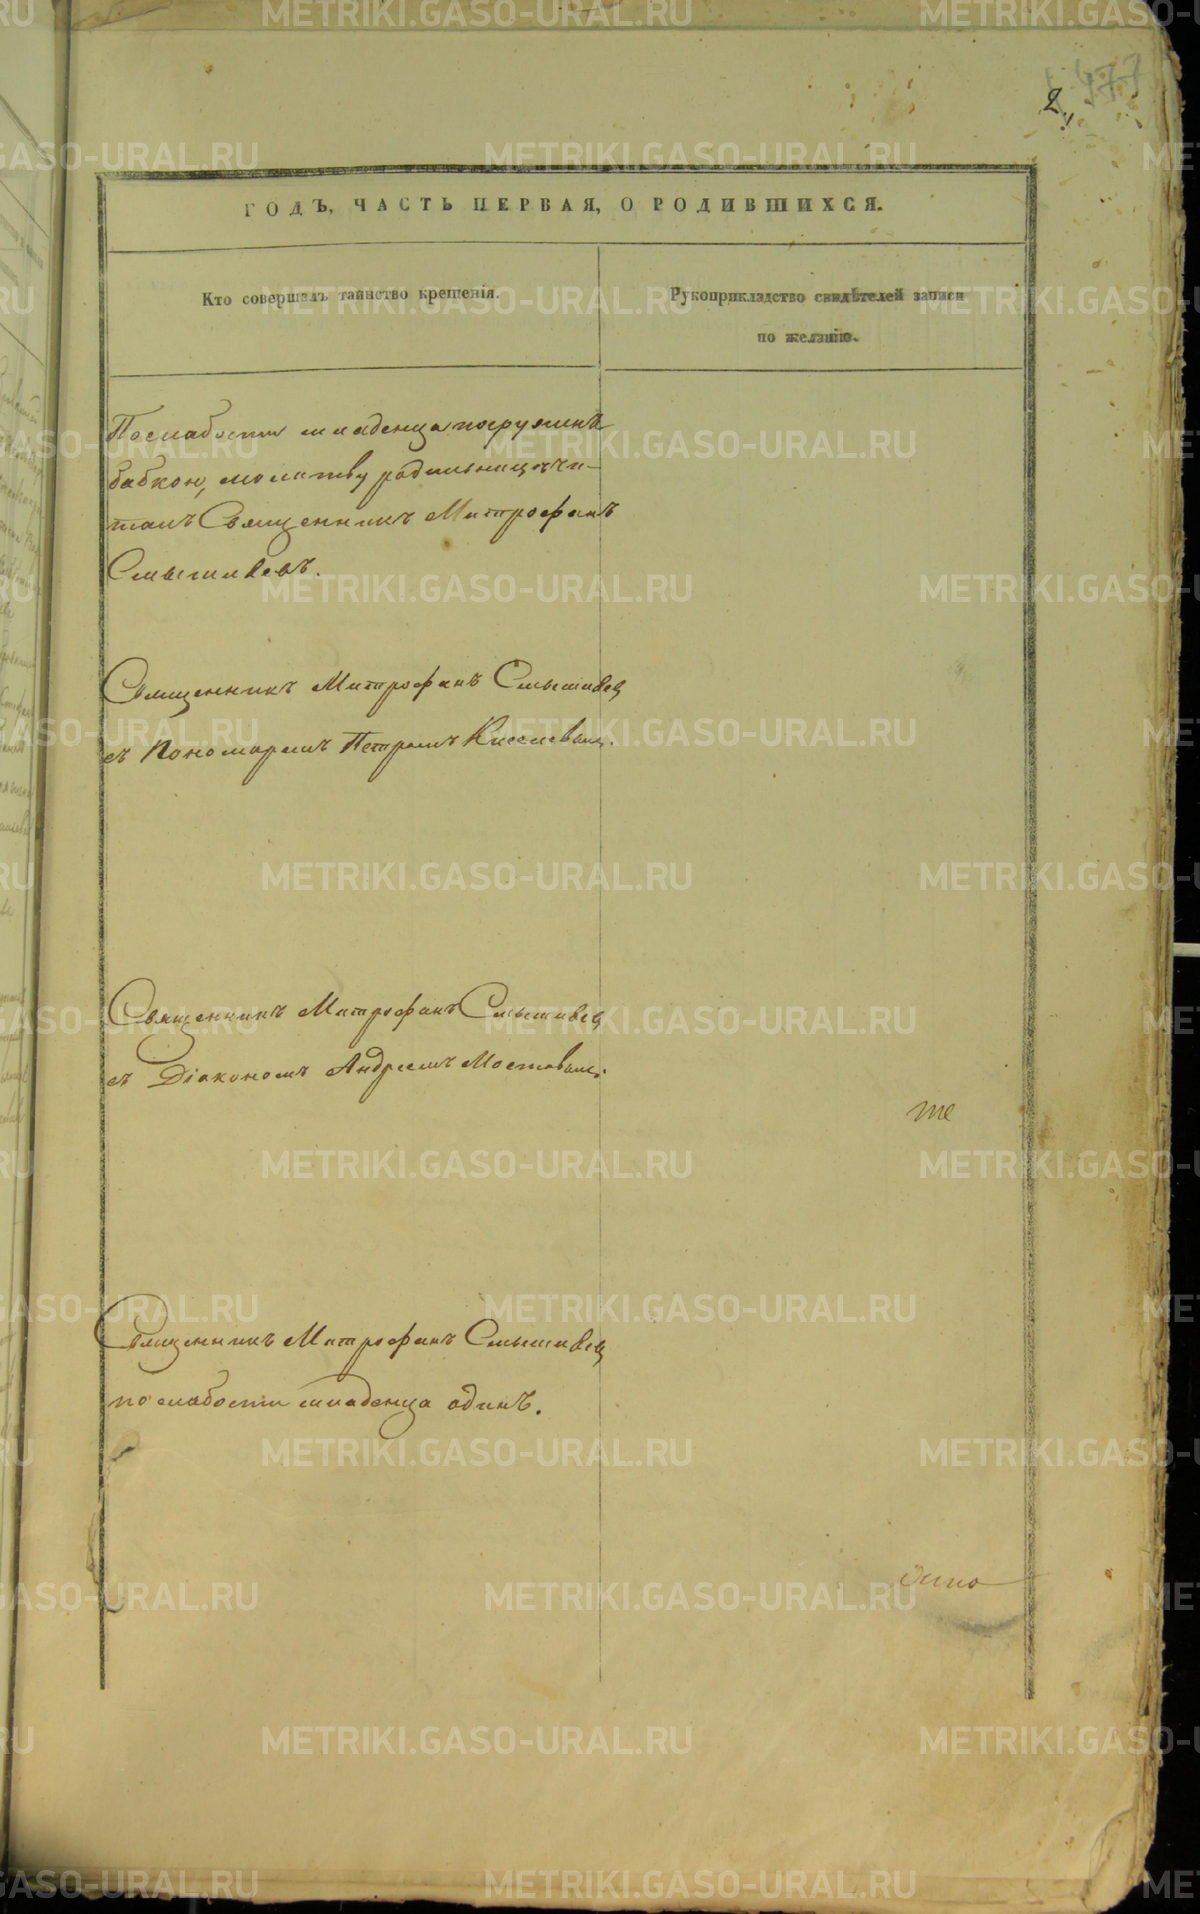 477
2
ГОДЪ, ЧАСТЬ ПЕРВАЯ, О РОДИВШИХСЯ.
Кто совершалъ таинство крещенія.
Рукоприкладство свидѣтелей записи
по желанію.
По слабости младенца погруженъ
бабкою, молитву родильницѣ чи-
талъ Священникъ Митрофанъ
Смышляевъ.
Священникъ Митрофанъ Смышляевъ
съ Пономаремъ Петромъ Киселевымъ.
Священникъ Митрофанъ Смышляевъ
съ Діакономъ Андреемъ Мостовымъ.
те
Священникъ Митрофанъ Смышляевъ
по слабости младенца одинъ.
METRIKI.GASO-URAL.RU